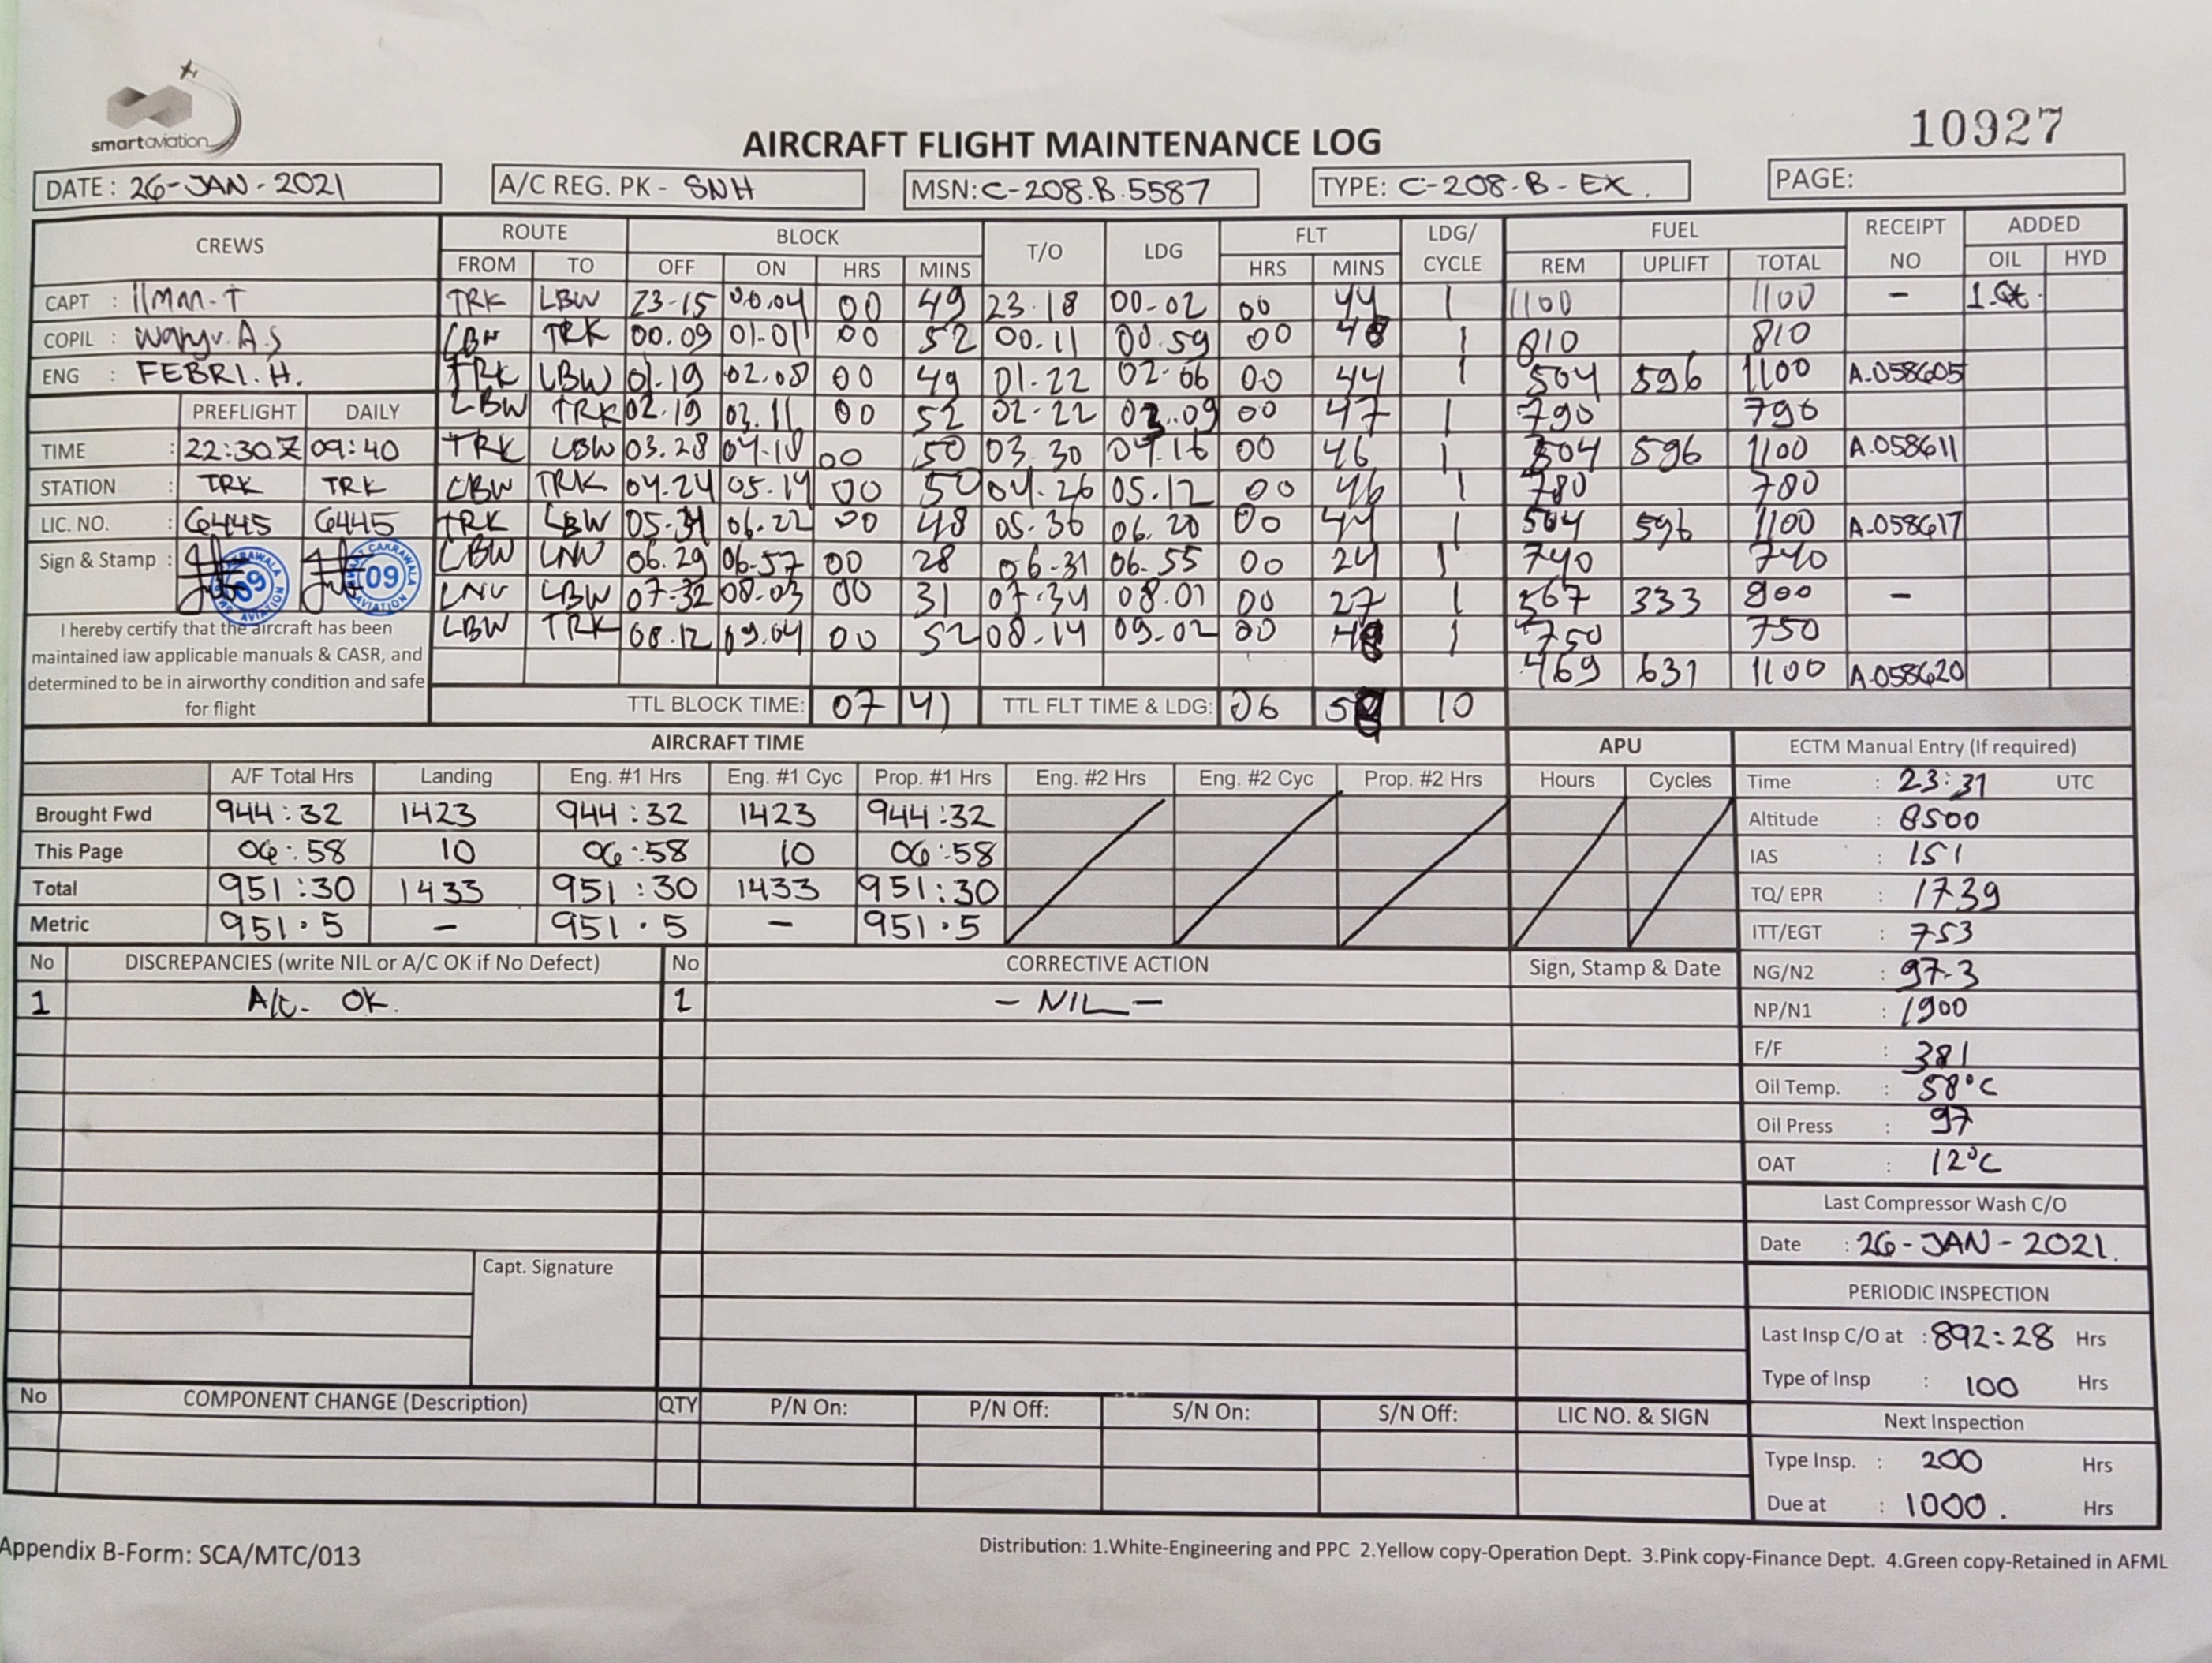 smartaviation
10927
AIRCRAFT FLIGHT MAINTENANCE LOG
DATE: 26-JAN-2021 A/C REG. PK - SNH MSN: C-208.B.5587 TYPE: C-208-B-EX. PAGE:
CREWS ROUTE BLOCK T/O LDG FLT LDG/ CYCLE FUEL RECEIPT NO ADDED
FROM TO OFF ON HRS MINS HRS MINS REM UPLIFT TOTAL OIL HYD
CAPT : Ilman.T TRK LBW 23-15 00.04 00 49 23.18 00-02 00 44 1 1100 1100 - 1.Qt.
COPIL : A.S LBW TRK 00.09 01-01 00 52 00.11 00.59 00 48 1 810 810
ENG : FEBRI.H. TRK LBW 01.19 02.08 00 49 01-22 02-06 00 44 1 504 596 1100 A.058605
PREFLIGHT DAILY LBW TRK 02.19 03.11 00 52 02-22 03.09 00 47 1 790 790
TIME : 22:30Z 09:40 TRK LBW 03.28 04.18 00 50 03.30 04.16 00 46 1 504 596 1100 A.058611
STATION : TRK TRK LBW TRK 04.24 05.14 00 50 04.26 05.12 00 46 1 780 780
LIC. NO. : 6445 6445 TRK LBW 05.34 06.22 00 48 05.36 06.20 00 44 1 504 596 1100 A.058617
Sign & Stamp : 09 09 LBW LNU 06.29 06-57 00 28 06-31 06.55 00 24 1 740 740
LNU LBW 07-32 08-03 00 31 07-34 08.01 00 27 1 567 333 900 -
I hereby certify that the aircraft has been LBW TRK 08.12 09.04 00 52 08-14 09-02 00 48 1 750 750
maintained iaw applicable manuals & CASR, and 469 631 1100 A.058620
determined to be in airworthy condition and safe
for flight TTL BLOCK TIME: 07 41 TTL FLT TIME & LDG: 06 58 10
AIRCRAFT TIME APU ECTM Manual Entry (If required)
A/F Total Hrs Landing Eng. #1 Hrs Eng. #1 Cyc Prop. #1 Hrs Eng. #2 Hrs Eng. #2 Cyc Prop. #2 Hrs Hours Cycles Time : 23:31 UTC
Brought Fwd 944:32 1423 944:32 1423 944:32 Altitude : 8500
This Page 06:58 10 06:58 10 06:58 IAS : 151
Total 951:30 1433 951:30 1433 951:30 TQ/ EPR : 1739
Metric 951.5 - 951.5 - 951.5 ITT/EGT : 753
No DISCREPANCIES (write NIL or A/C OK if No Defect) No CORRECTIVE ACTION Sign, Stamp & Date NG/N2 : 97.3
1 A/C- OK. 1 - NIL - NP/N1 : 1900
F/F : 381
Oil Temp. : 58°C
Oil Press : 97
OAT : 12°C
Last Compressor Wash C/O
Date : 26-JAN-2021.
Capt. Signature
PERIODIC INSPECTION
Last Insp C/O at : 892:28 Hrs
Type of Insp : 100 Hrs
No COMPONENT CHANGE (Description) QTY P/N On: P/N Off: S/N On: S/N Off: LIC NO. & SIGN
Next Inspection
Type Insp. : 200 Hrs
Due at : 1000. Hrs
Appendix B-Form: SCA/MTC/013
Distribution: 1.White-Engineering and PPC 2.Yellow copy-Operation Dept. 3.Pink copy-Finance Dept. 4.Green copy-Retained in AFML